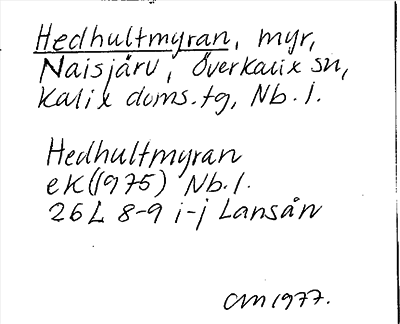 Hedhultmyran, myr,
Naisjärv, Överkalix sn,
Kalix doms.tg, Nb.l.
Hedhultmyran
ek(1975) Nb.l.
26L 8-9 i-j Lansån
CM 1977.